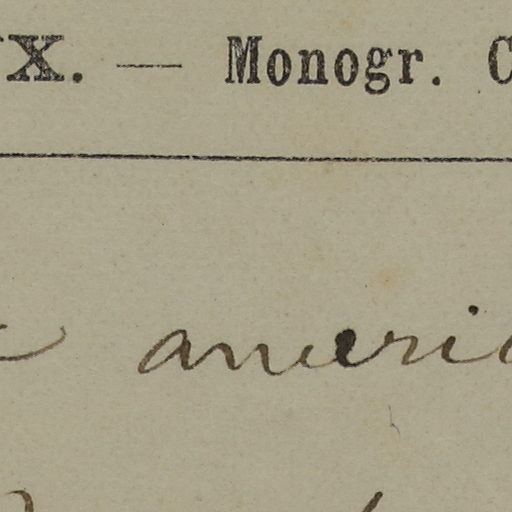 X. — Monogr. C
americ